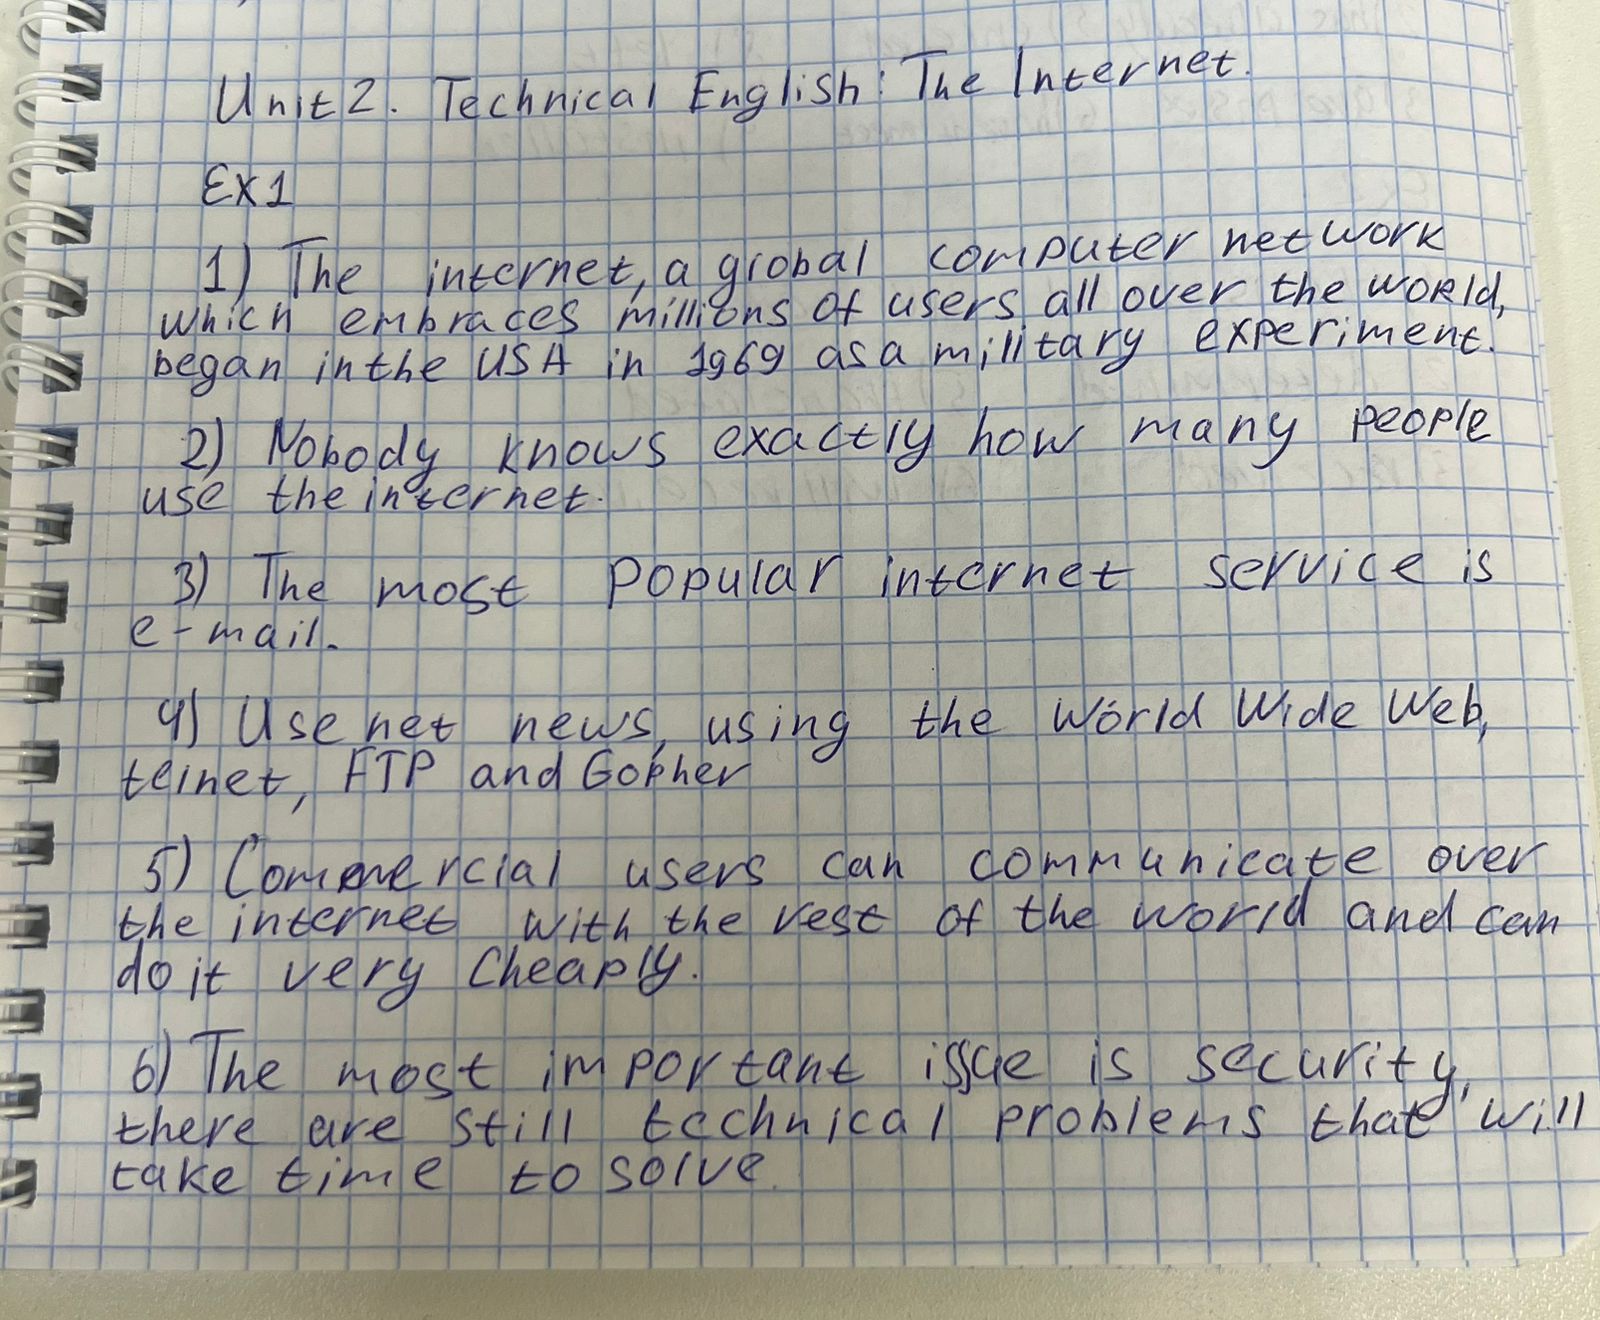 Unit 2. Technical English: The Internet.
EX1
1) The internet, a global computer network
which embraces millions of users all over the world,
began in the USA in 1969 as a military experiment.
2) Nobody knows exactly how many people
use the internet.
3) The most popular internet service is
e-mail.
4) Use net news, using the World Wide Web,
telnet, FTP and Gopher
5) Commercial users can communicate over
the internet with the rest of the world and can
do it very cheaply.
6) The most important issue is security,
there are still technical problems that will
take time to solve.